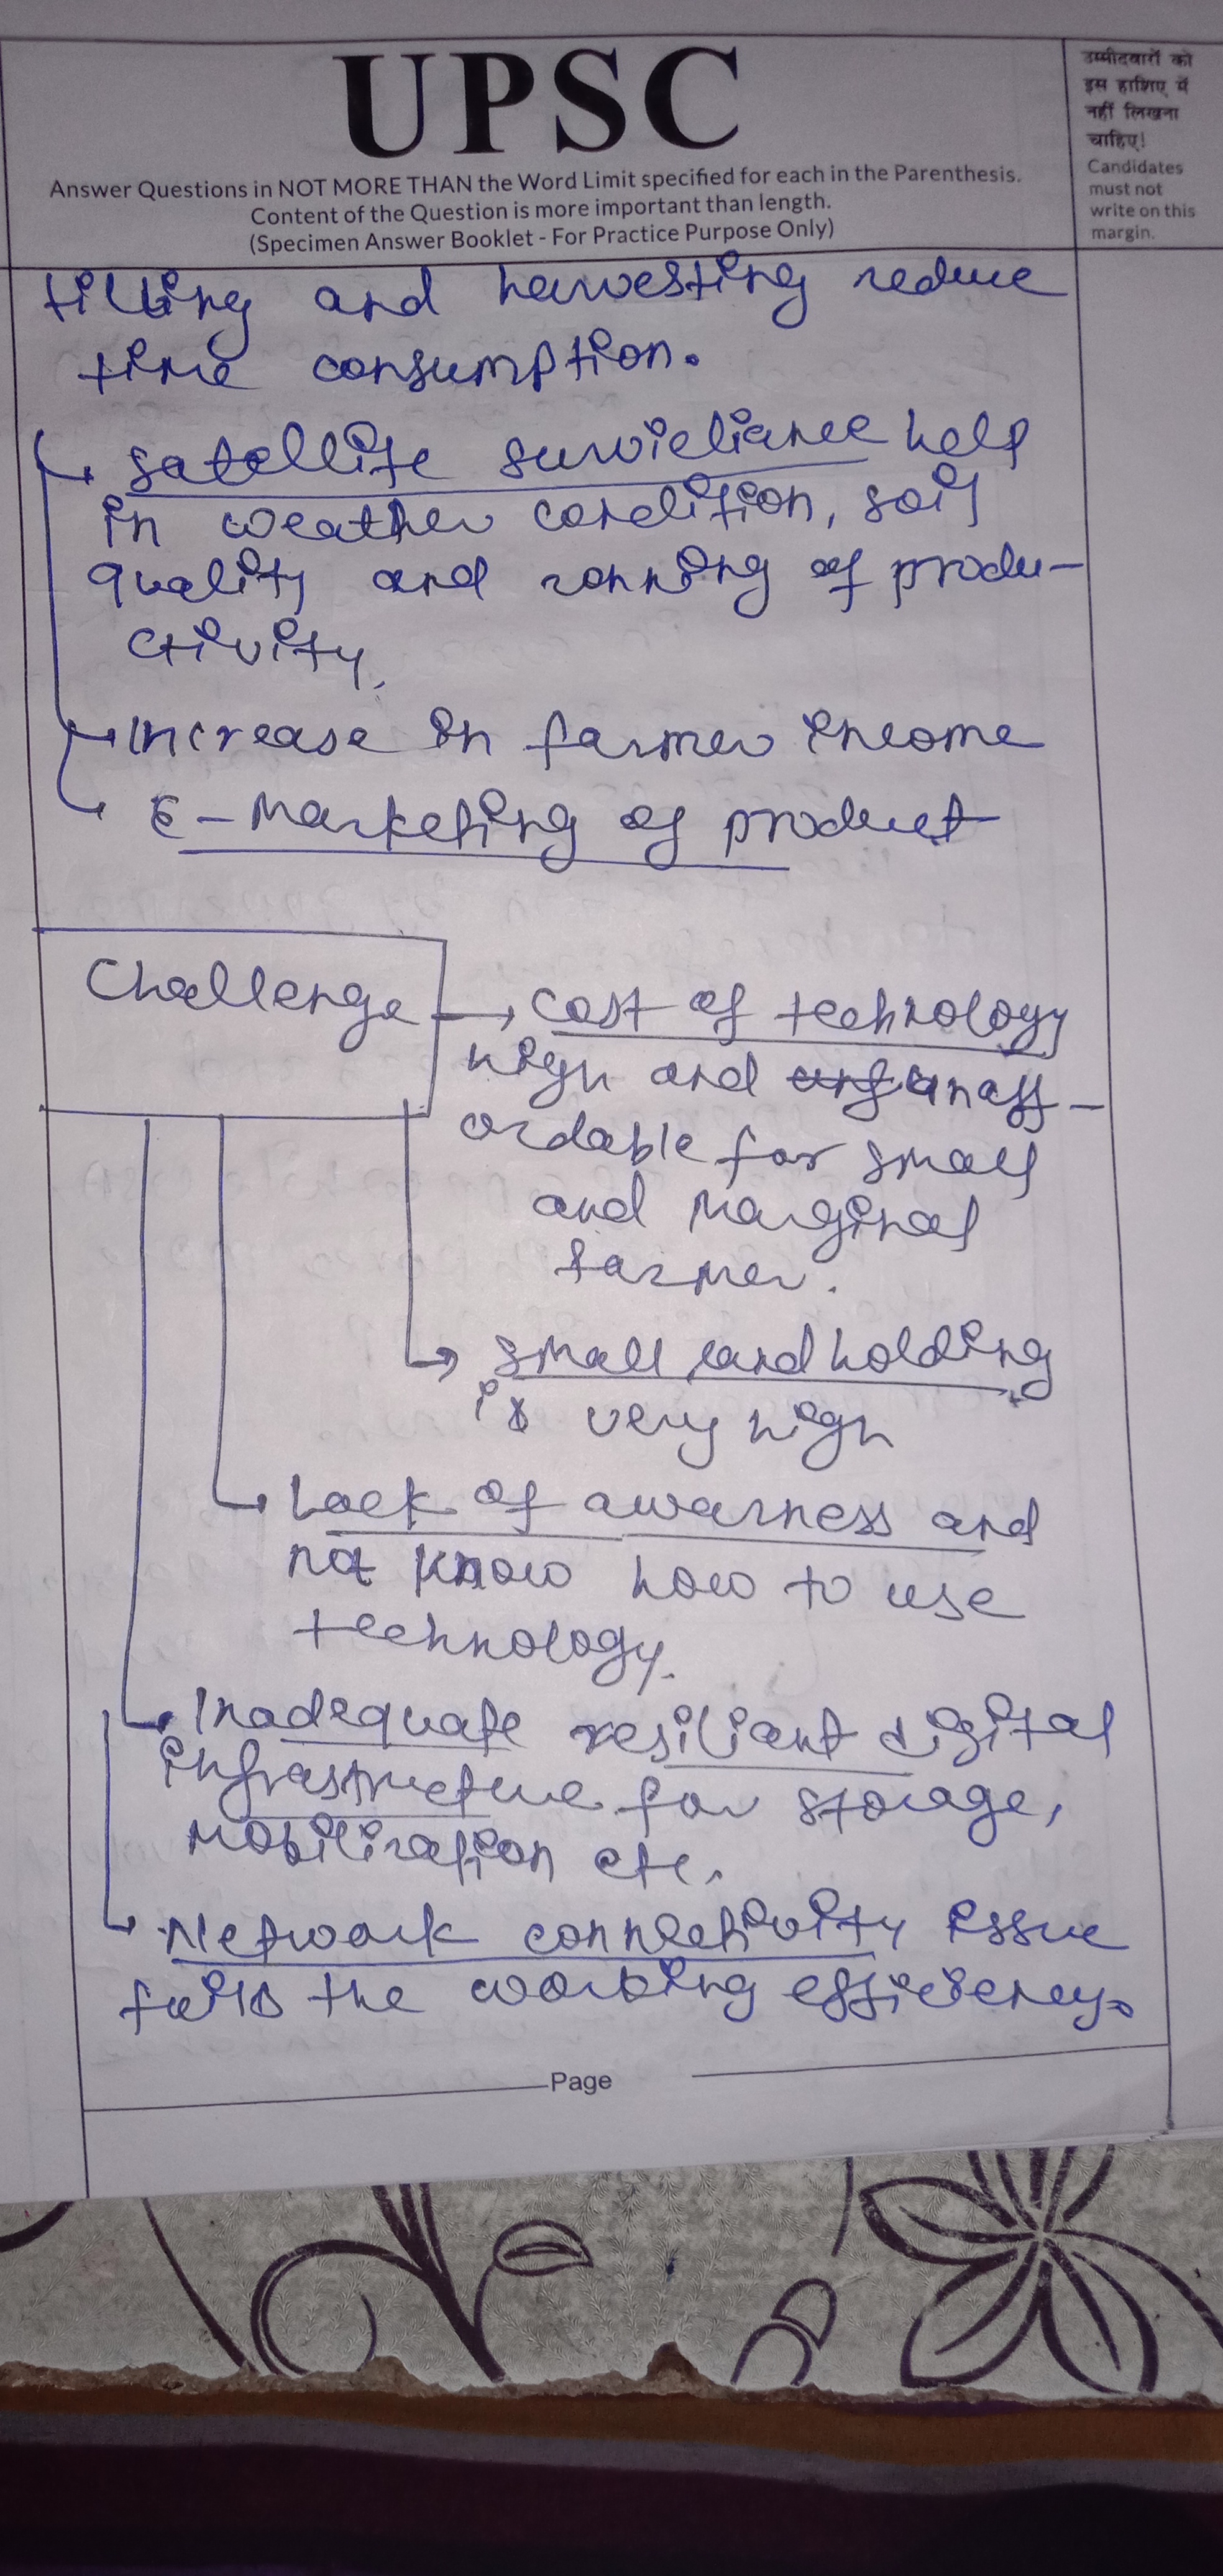 UPSC
Answer Questions in NOT MORE THAN the Word Limit specified for each in the Parenthesis.
Content of the Question is more important than length.
(Specimen Answer Booklet - For Practice Purpose Only)
उम्मीदवारों को
इस हाशिए में
नहीं लिखना
चाहिए!
Candidates
must not
write on this
margin.
tilling and harvesting reduce
time consumption.
satellite survieliance help
in weather condition, soil
quality and zonning of produ-
ctivity.
Increase in farmer income
E-Marketing of product
Challenge
→ cost of technology
high and unaff-
ordable for small
and marginal
farmer.
→ small land holding
is very high
Lack of awarness and
not know how to use
technology.
Inadequate resiliant digital
infrastructure for storage,
mobilization etc.
Network connectivity issue
fails the working efficiency.
Page